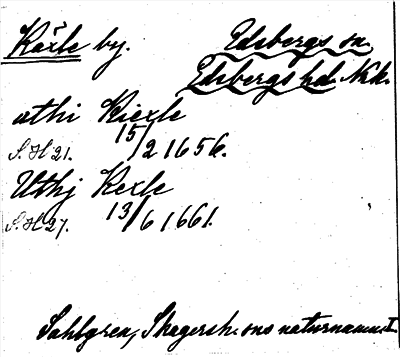 Käxle by. Edsbergs sn
Edsbergs hd Nrk.
uthi Kiexle
S. H 21. 15/2 1656.
Uthj Kexle
S. H 27. 13/6 1661.
Sahlgren, Skagersh. sns naturnamn. I.